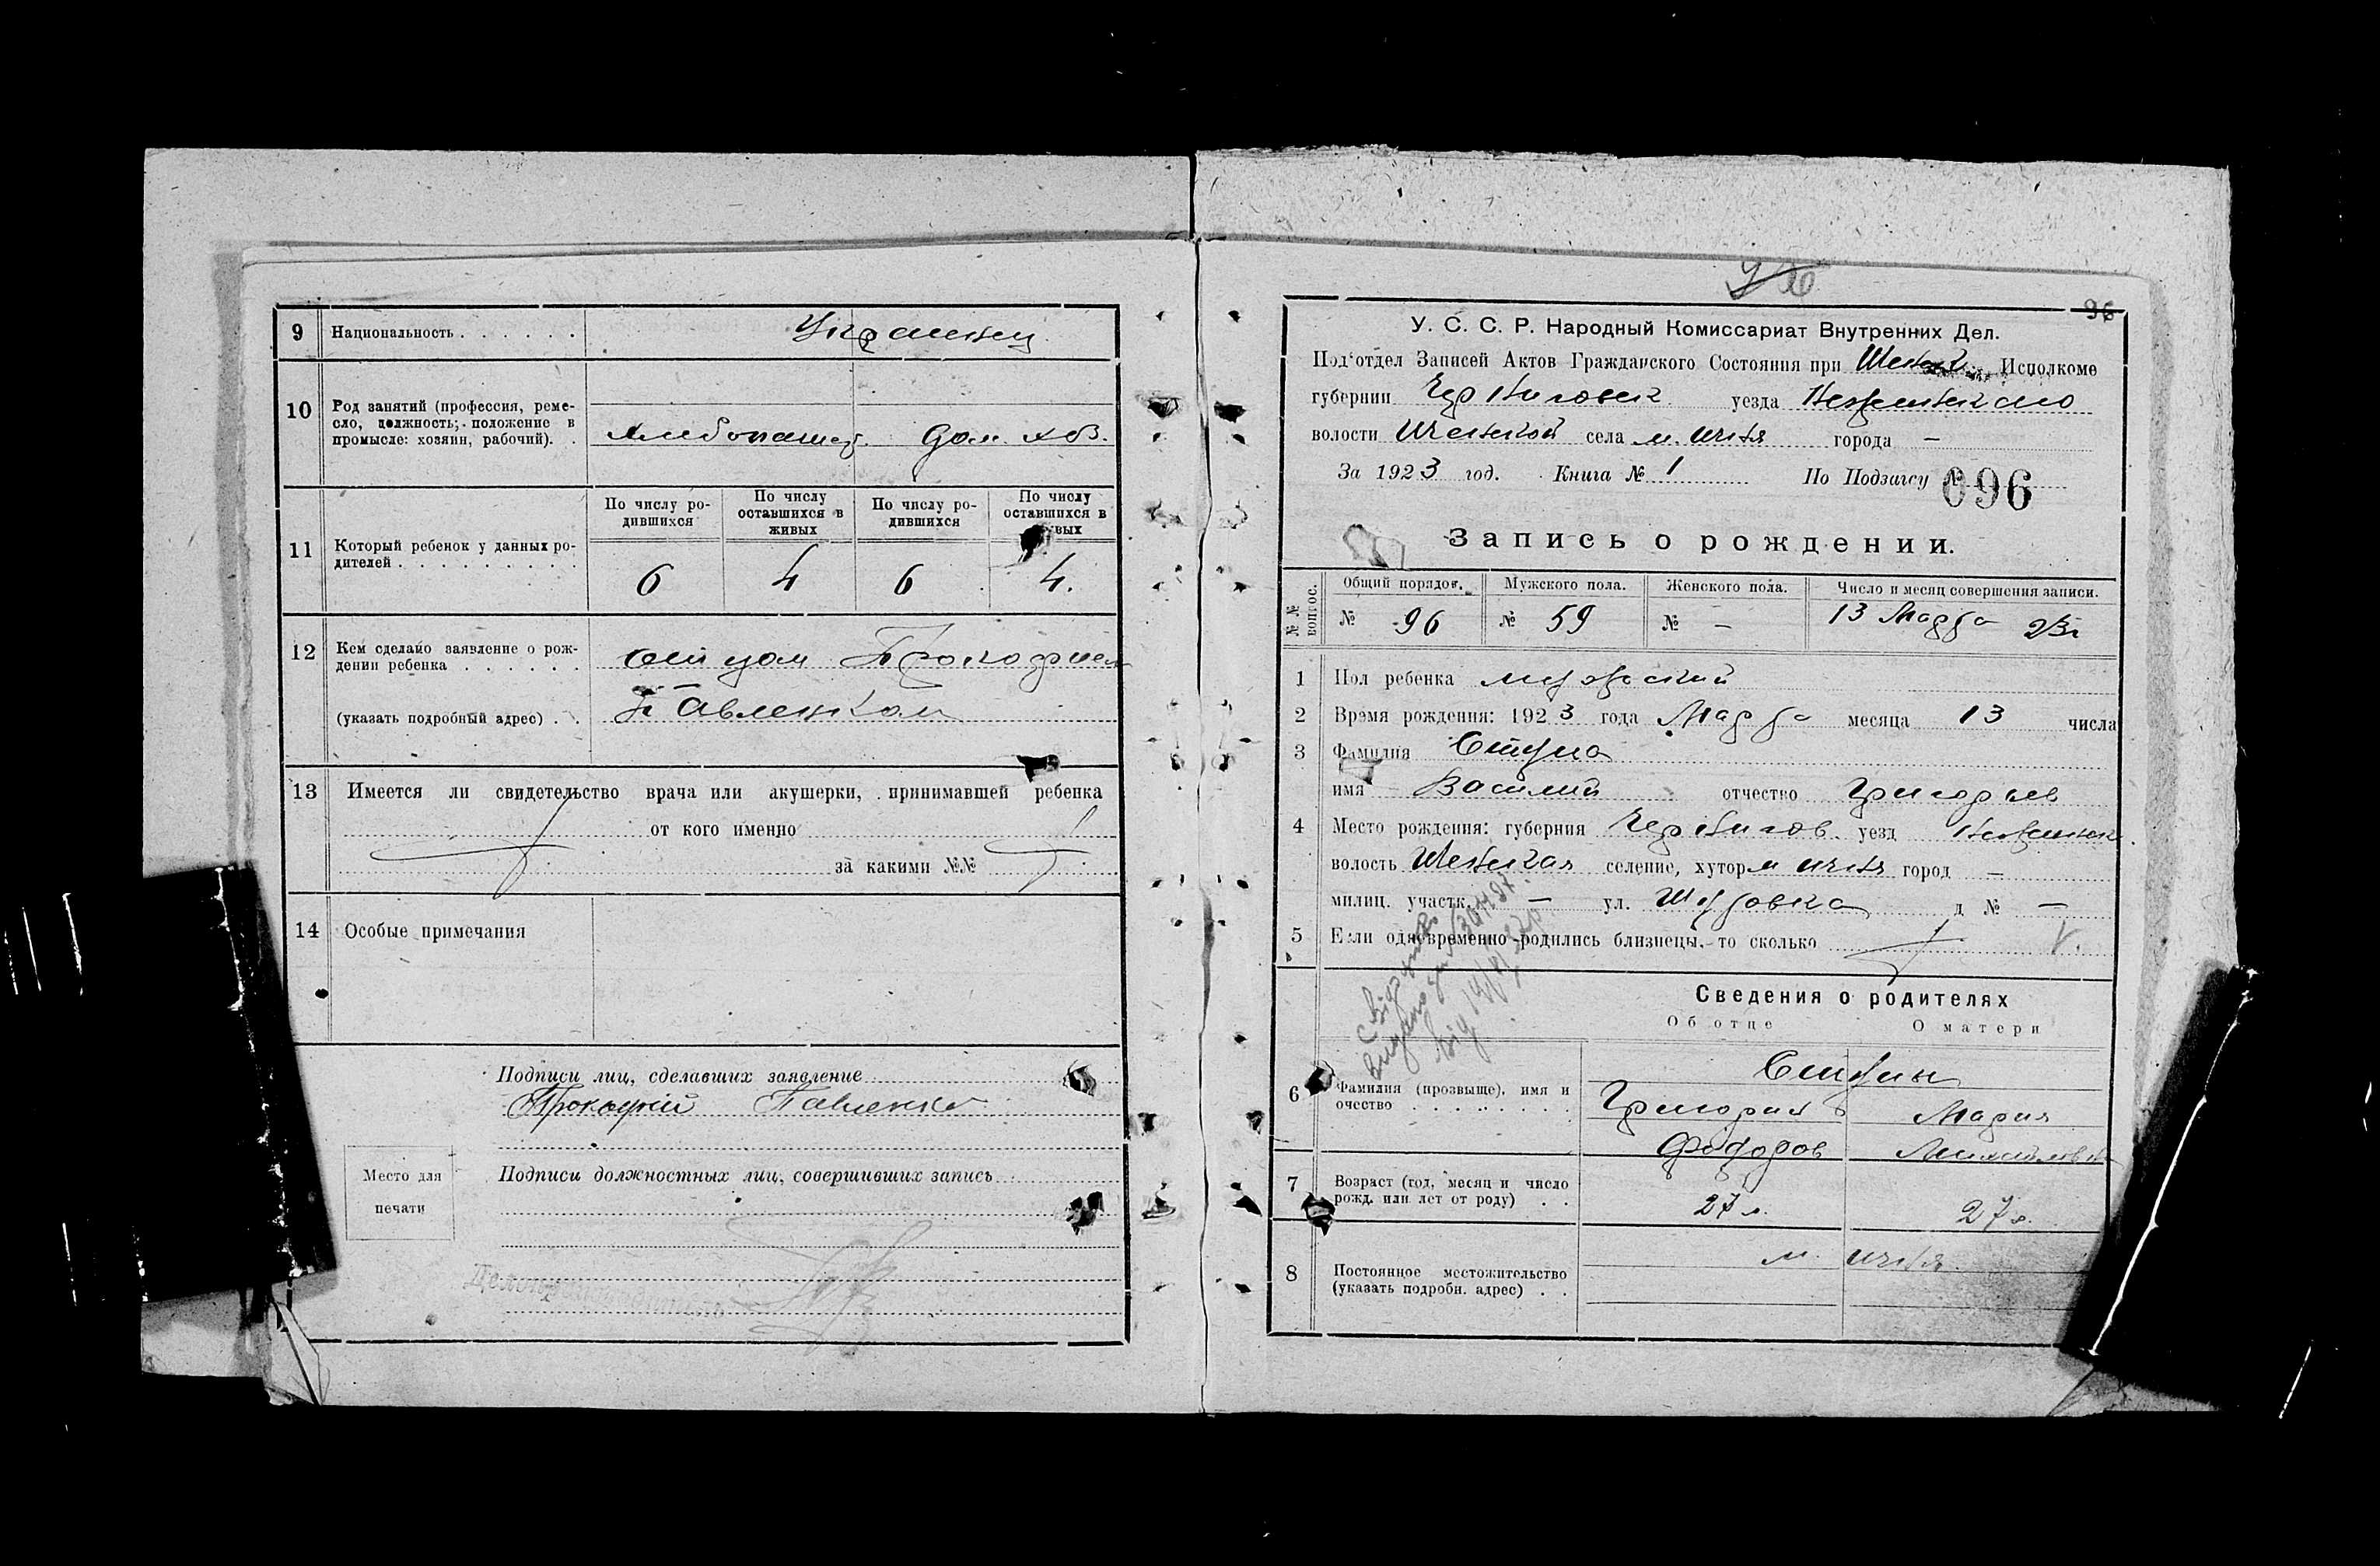 9 Национальность . . . . . . Украинец
10 Род занятий (профессия, реме-
сло, должность; положение в
промысле: хозяин, рабочий). .
Хлебопашец. Дом. хоз.
11 Который ребенок у данных ро-
дителей . . . . . . . . .
По числу ро-
дившихся
По числу
оставшихся в
живых
По числу ро-
дившихся
По числу
оставшихся в
6 4 6 4.
12 Кем сделано заявление о рож-
дении ребенка . . . . . . отцом Прокофием
(указать подробный адрес) . . Павленком
13 Имеется ли свидетельство врача или акушерки, принимавшей ребенка
от кого именно
за какими №№
14 Особые примечания
Подписи лиц, сделавших заявление
Прокофий Павленко
Место для
печати
Подписи должностных лиц, совершивших запись
96
У. С. С. Р. Народный Комиссариат Внутренних Дел.
Под'отдел Записей Актов Гражданского Состояния при Исполкоме
губернии Черниговск уезда Неженского
волости Иченской села м. Ичня города —
За 1923 год. Книга № 1 По Подзагсу № 096
Запись о рождении.
№№ вопрос.
Общий порядок. Мужского пола. Женского пола. Число и месяц совершения записи.
№ 96 № 59 № — 13 Марта 23г
1 Пол ребенка мужский
2 Время рождения: 1923 года Марта месяца 13 числа
3 Фамилия
имя Василий отчество Григорьев
4 Место рождения: губерния Чернигов. уезд Неженск
волость Иченская селение, хутор м Ичня город —
милиц. участк. — ул. д № —
5 Если одновременно родились близнецы, то сколько
Сведения о родителях
Об отце О матери
6 Фамилия (прозвище), имя и
очество . . . . . . . .
Григорий Мария
Федоров Михайловна
7 Возраст (год, месяц и число
рожд. или лет от роду) . .
27 л. 27 л.
8 Постоянное местожительство
(указать подробн. адрес) . .
м. Ичня.